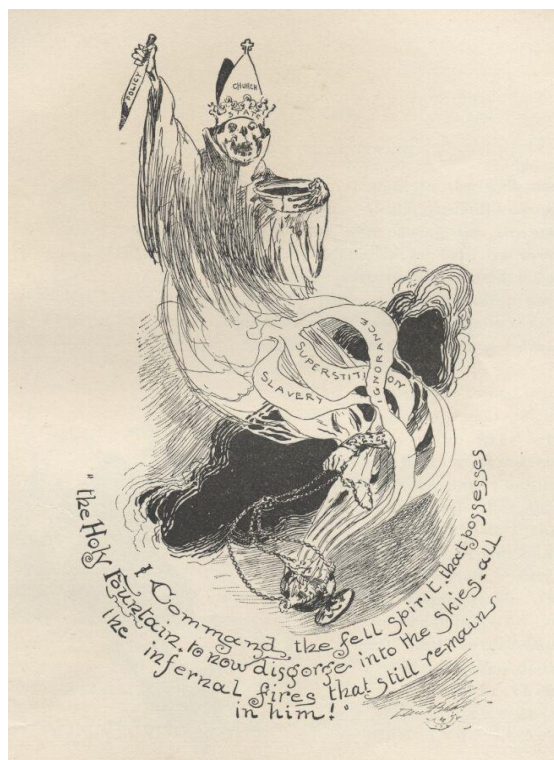 POLICY
CHURCH
STATE
IGNORANCE
SUPERSTITION
SLAVERY
I Command the fell spirit. that possesses
"the Holy Fountain. to now disgorge into the skies. all
the infernal fires that still remains
in him!"